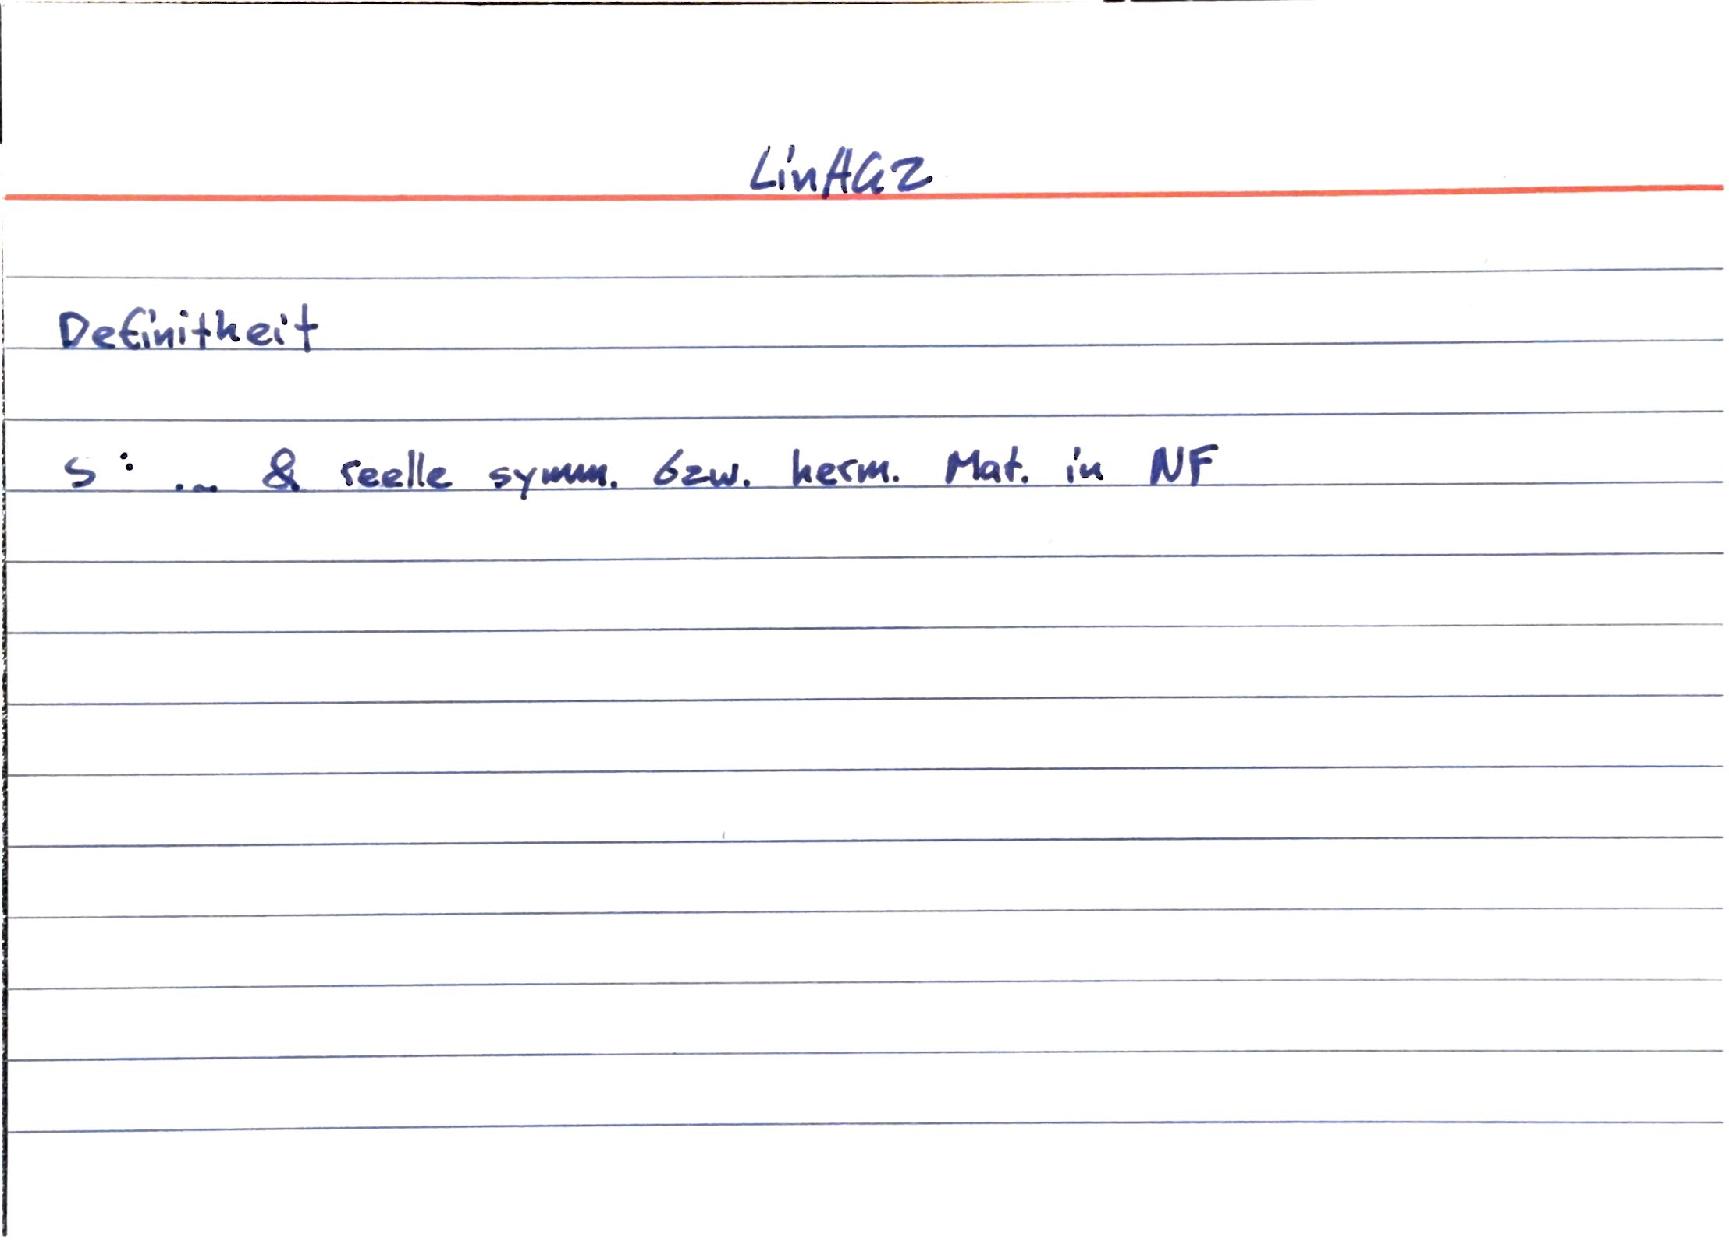 LinAG2
Definitheit
S: ... & reelle symm. bzw. herm. Mat. in NF